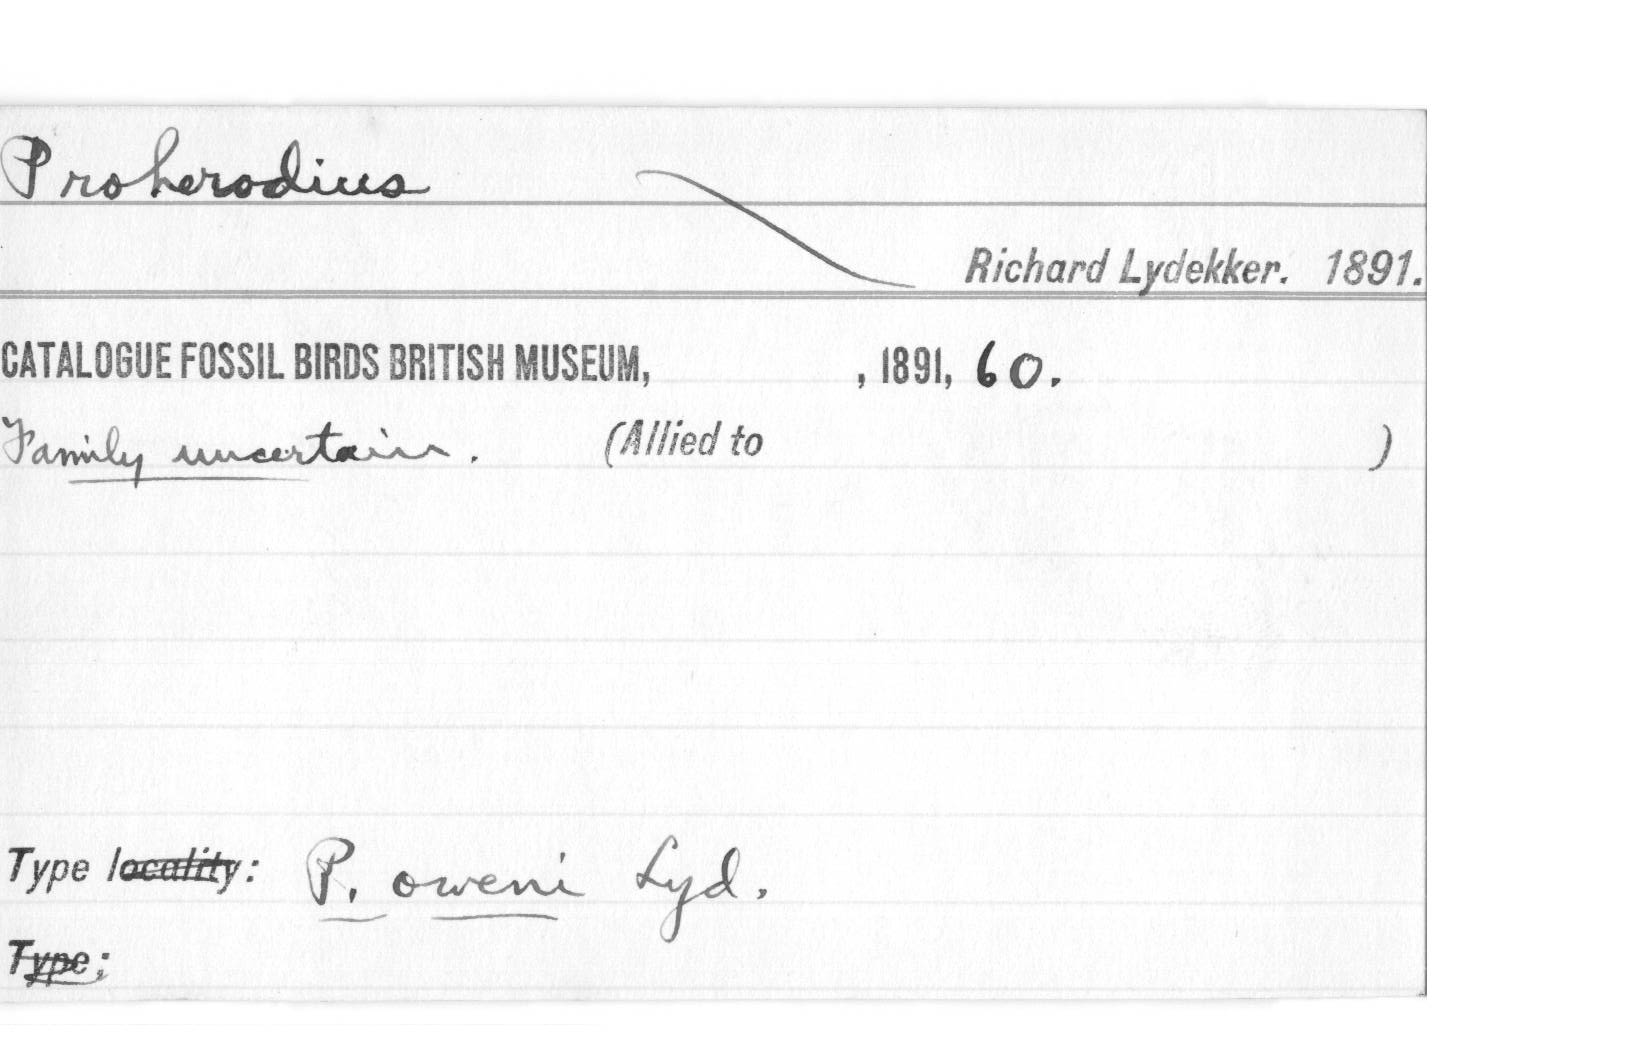 Proherodius
Richard Lydekker. 1891.
CATALOGUE FOSSIL BIRDS BRITISH MUSEUM, , 1891, 60.
Family uncertain. (Allied to )
Type locality: P. oweni Lyd.
Type: